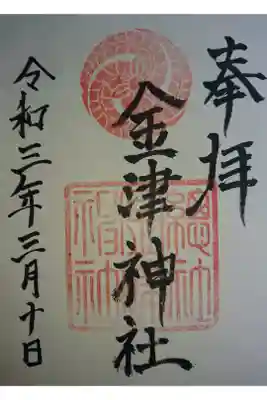 奉拝
金津神社
令和三年三月十日